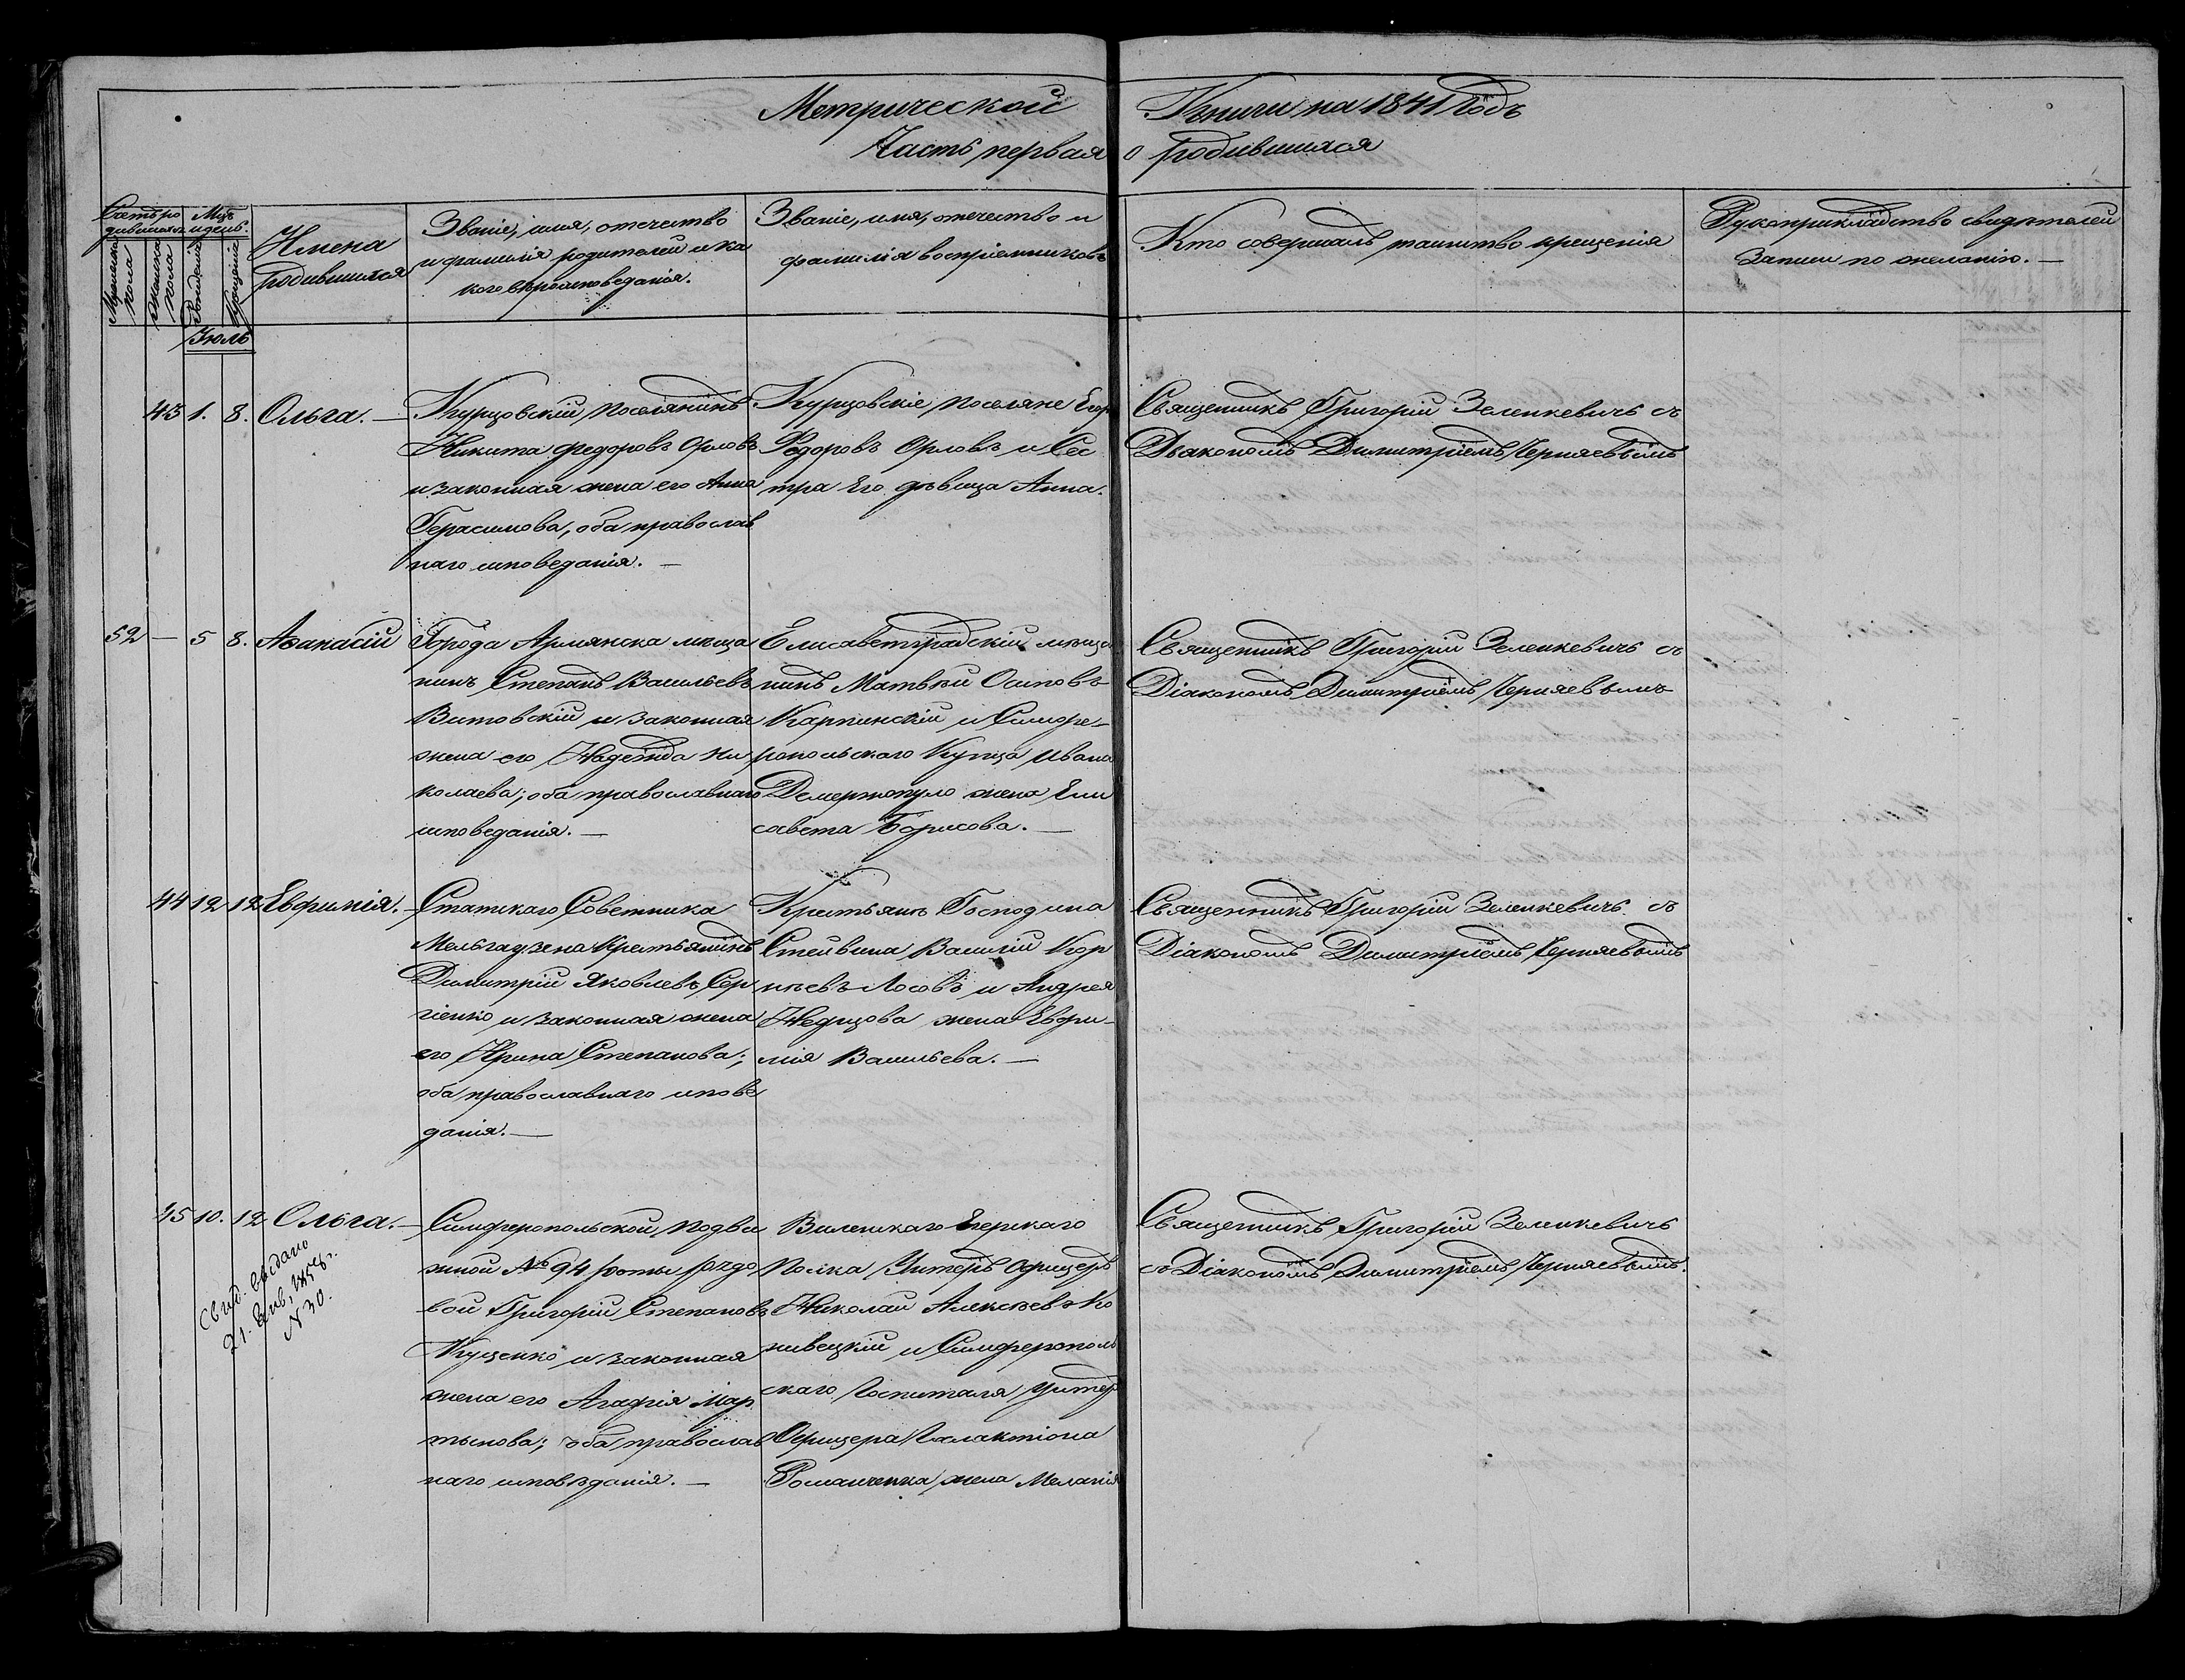 Метрической Книги на 1841 Годъ
Часть первая о Родившихся
Счетъ родившихся
Мужеска пола
Женска пола
Мцъ и день.
Рожденія
Крещенія
Имена Родившихся
Званіе, имя, отчество
и фамилія родителей и ка
кого вѣроисповеданія.
Званіе, имя, отчество и
фамилія воспріемниковъ
Кто совершалъ таинство крещенія
Рукоприкладство свидѣтелей
Записи по желанію. —
Іюль
43 1. 8. Ольга. —
Курцовскій поселянинъ
Никита Федоровъ Орловъ
и законная жена его Анна
Герасимова, оба православ
наго исповеданія. —
Курцовскіе поселяне Егор
Федоровъ Орловъ и Сес
тра Его дѣвица Анна.
Священникъ Григорій Зеленкевичь съ
Дьякономъ Димитріемъ Черняевымъ
52 — 5 8. Аѳанасій
Города Армянска мѣща
нинъ Степанъ Васильевъ
Витовскій и законная
жена его Надежда Ни
колаева; оба православнаго
исповеданія. —
Елисаветградскій мѣща
нинъ Матвѣй Осиповъ
Карпинскій и Симфе-
ропольскаго Купца Ивана
Демержопуло жена Ели
савета Борисова. —
Священникъ Григорій Зеленкевичь съ
Діакономъ Димитріемъ Черняевымъ
44 12 12 Евфимія. —
Статскаго Советника
Мельгадзена Крестьянинъ
Димитрій Яковлевъ Сер
гіенко и законная жена
его Ирина Степанова;
оба православнаго испове
данія. —
Крестьянъ Господина
Стейвина Василій Кор
нѣевъ Лосовъ и Андрея
Недцова жена Евфи-
мія Васильева. —
Священникъ Григорій Зеленкевичь съ
Діакономъ Димитріемъ Черняевымъ
45 10. 12 Ольга. —
Свид. выдано
21. Янв. 1858г.
№ 30.
Симферопольской подви
жной № 94 роты рядо
вой Григорій Степановъ
Куценко и законная
жена его Агафія Мар
тынова; оба православ
наго исповѣданія. —
Виленскаго Егерскаго
Полка Унтеръ Офицеръ
Николай Алексѣевъ Ко
нивецкій и Симферополь
скаго Госпиталя Унтер
Офицера Галактіона
Романченка жена Меланія
Священникъ Григорій Зеленкевичь
съ Діакономъ Димитріемъ Черняевымъ.